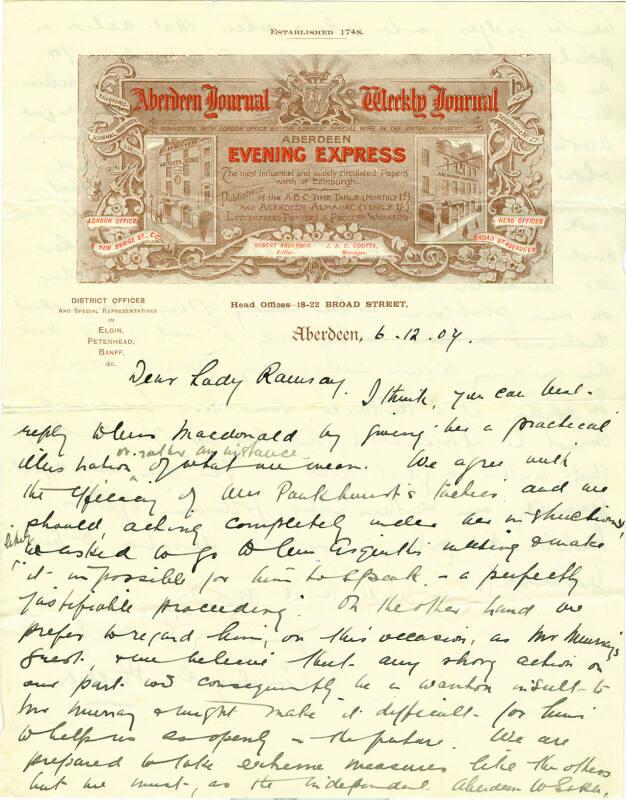 ESTABLISHED 1748.
Aberdeen Journal Weekly Journal
TELEPHONES
JOURNAL ABERDEEN
CONNECTED WITH LONDON OFFICE BY THE LONGEST SPECIAL WIRE IN THE UNITED KINGDOM
ABERDEEN
EVENING EXPRESS
The most influential and widely circulated Papers
north of Edinburgh.
Publishers of the A.B.C. TIME TABLE (MONTHLY 1d)
AND ABERDEEN ALMANAC (YEARLY 1/-)
LETTERPRESS PRINTERS & PROCESS WORKERS
LONDON OFFICE
NEW BRIDGE ST., E.C.
HEAD OFFICES
BROAD ST ABERDEEN
ROBERT ANDERSON J. A. C. COUTTS,
Editor. Manager.
DISTRICT OFFICES
AND SPECIAL REPRESENTATIVES
IN
ELGIN,
PETERHEAD,
BANFF,
&c.
Head Offices—18-22 BROAD STREET,
Aberdeen, 6.12.07.
Dear Lady Ramsay. I think, you can best
reply to Miss Macdonald by giving her a practical
or rather an instance
illustration of what we mean. We agree with
the efficacy of Mrs Pankhurst's tactics and we
should, acting completely under her instructions,
be asked to go to Asquith's meeting & make
it impossible for him to speak – a perfectly
justifiable proceeding. On the other hand we
prefer to regard him, on this occasion, as Mr Murray's
guest, & we believe that any strong action on
our part wd consequently be a wanton insult to
Mr Murray & might make it difficult for him
to help us as openly in the future. We are
prepared to take extreme measures like the others
but we must, as the independent Aberdeen